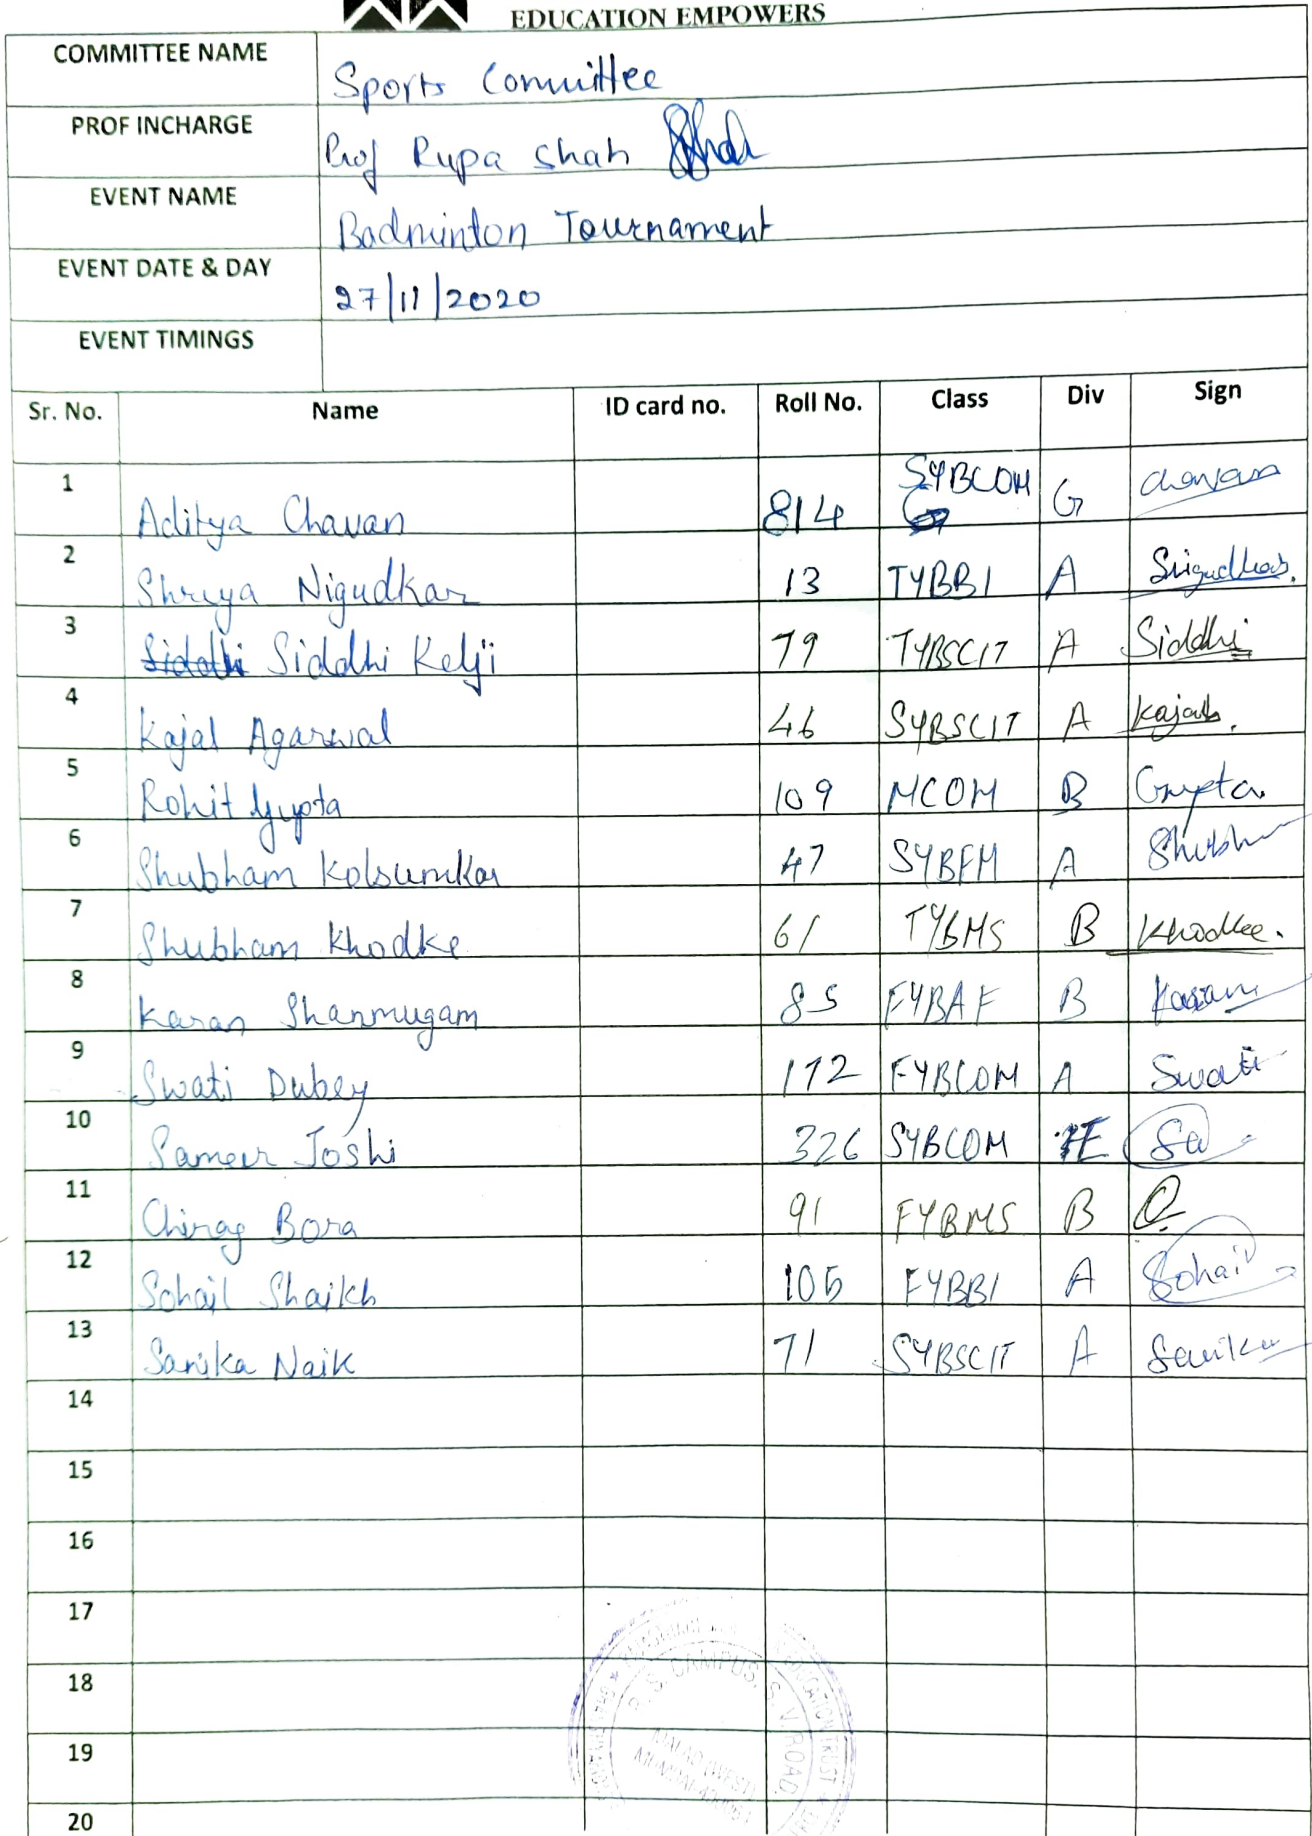 EDUCATION EMPOWERS
COMMITTEE NAME Sports Committee
PROF INCHARGE Prof Rupa Shah
EVENT NAME Badminton Tournament
EVENT DATE & DAY 27/11/2020
EVENT TIMINGS
Sr. No. Name ID card no. Roll No. Class Div Sign
1 Aditya Chavan 814 SYBCOM G Chavan
2 Shreya Nigudkar 13 TYBBI A
3 Siddhi Siddhi Kelji 79 TYBSCIT A Siddhi
4 Kajal Agarwal 46 SYBSCIT A Kajal.
5 Rohit Gupta 109 MCOM B Gupta
6 Shubham Kolsumkar 47 SYBFM A Shubh
7 Shubham Khodke 61 TYBMS B Khodke.
8 Karan Shanmugam 85 FYBAF B Karan
9 Swati Dubey 172 FYBCOM A Swati
10 Sameer Joshi 326 SYBCOM E Sa
11 Chirag Bora 91 FYBMS B
12 Sohail Shaikh 105 FYBBI A Sohail
13 Sanika Naik 71 SYBSCIT A Sanika
14
15
16
17
18
19
20
CAMPUS, S. V. ROAD,
EDUCATION TRUST
MALAD (WEST)